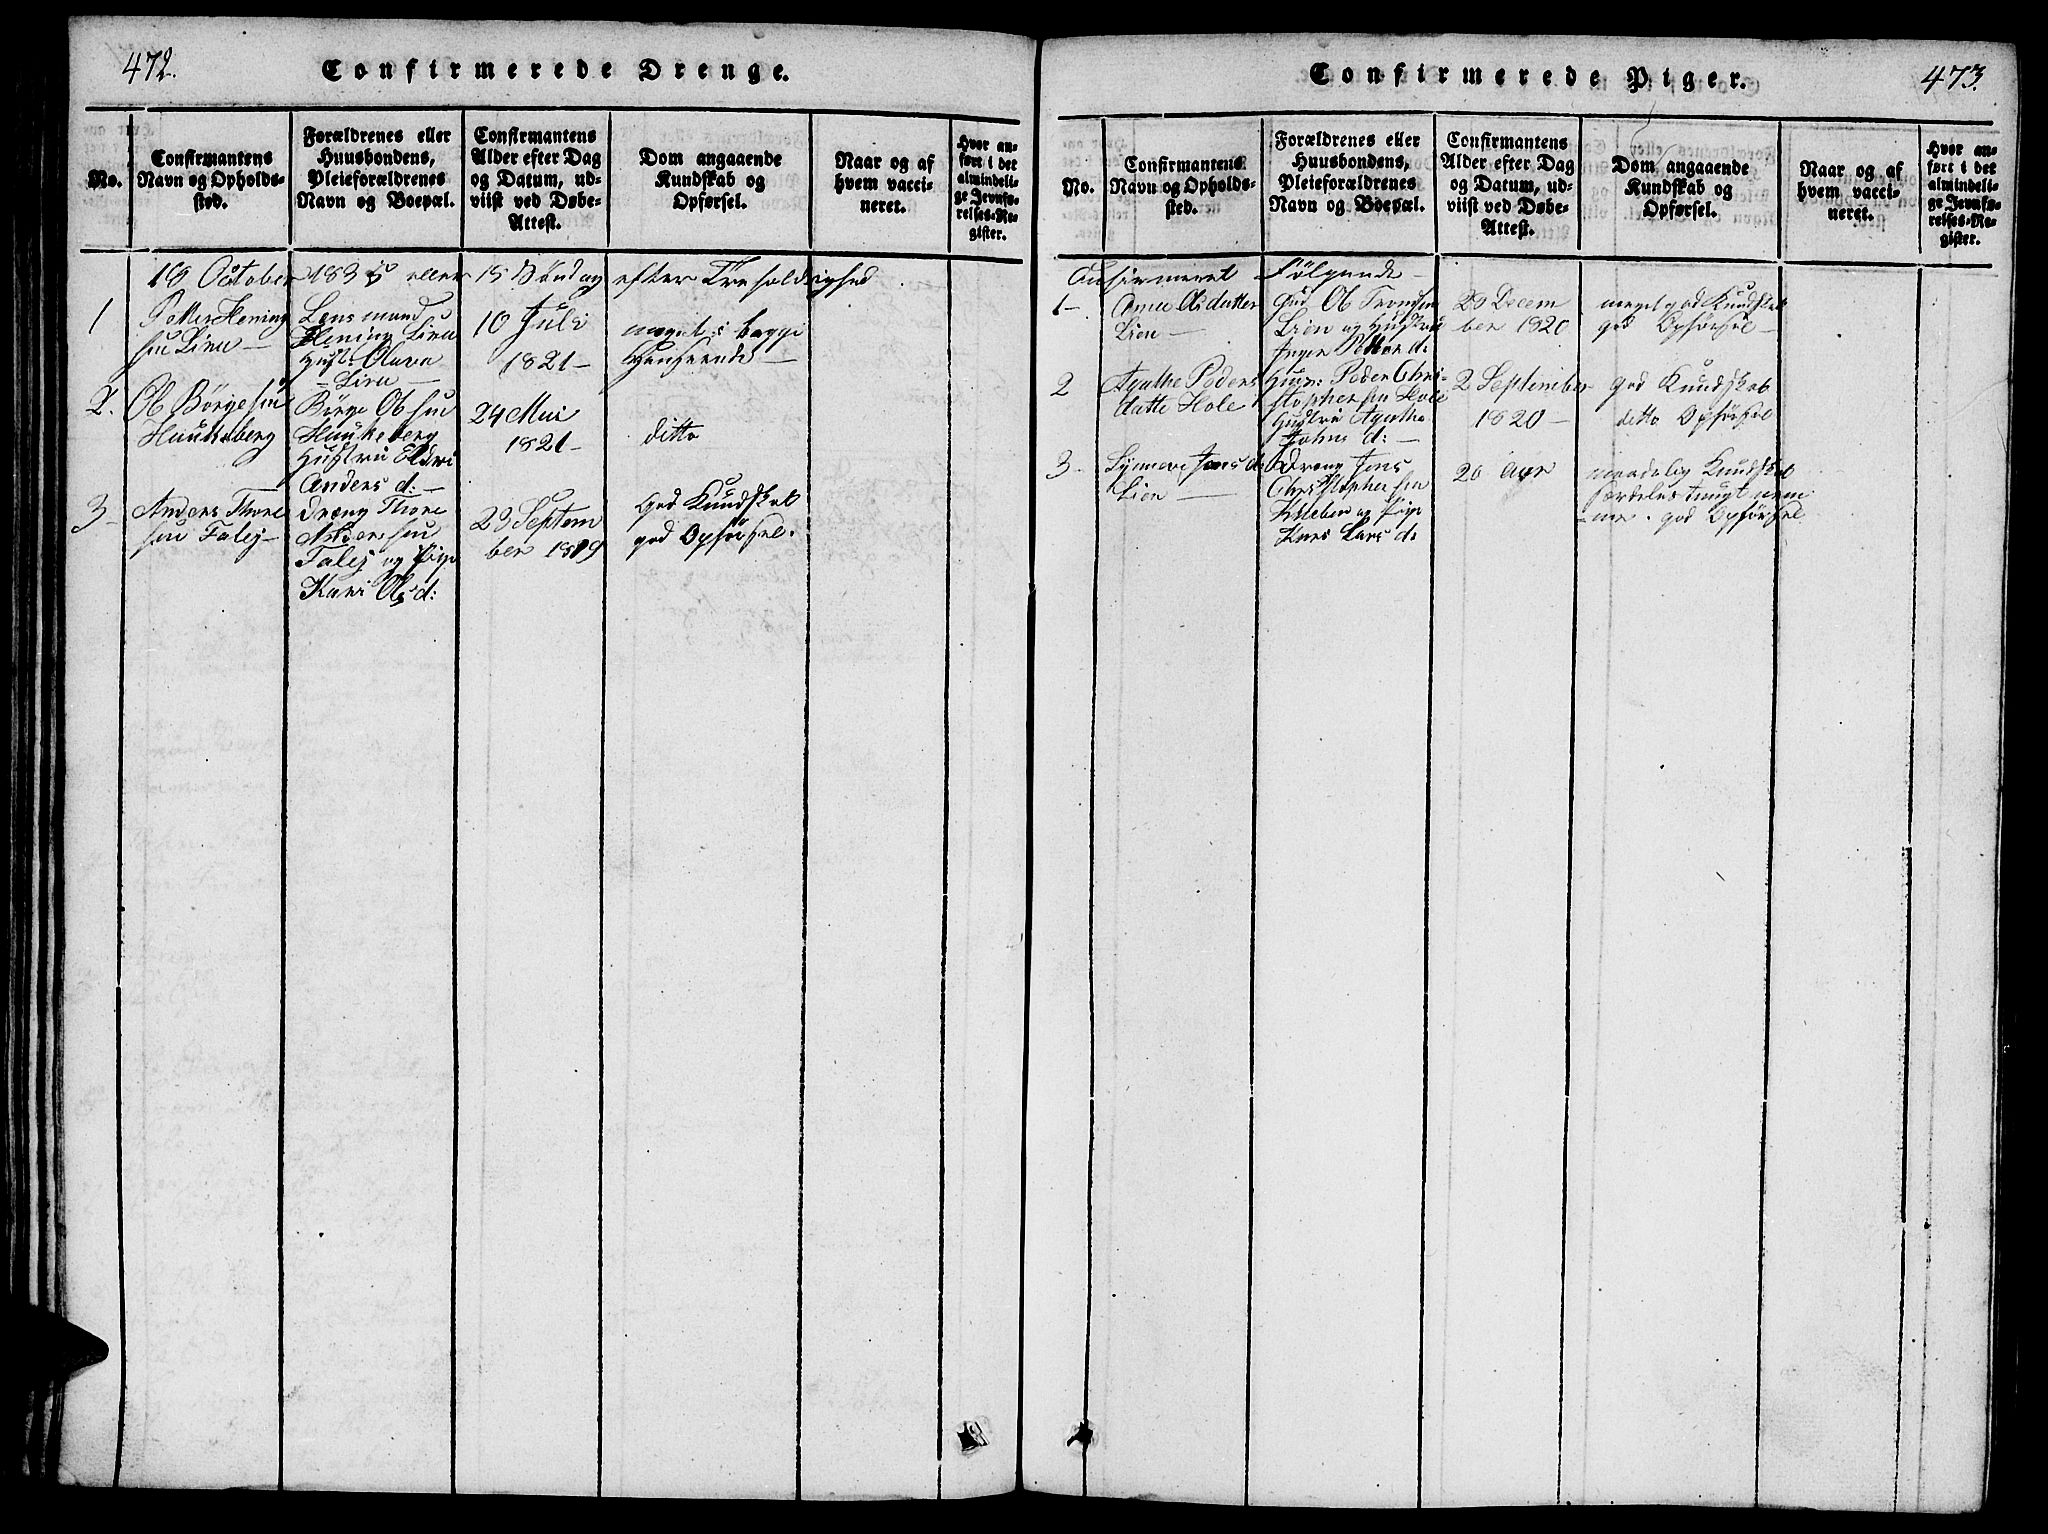 472.
Confirmerede Drenge.
No.
Confirmantens
Navn og Opholds-
sted.
Forældrenes eller
Huusbondens,
Pleieforældrenes
Navn og Boepæl.
Confirmantens
Alder efter Dag
og Datum, ud-
viist ved Døbe-
Attest.
Dom angaaende
Kundskab og
Opførsel.
Naar og af
hvem vacci-
neret.
Hvor an-
ført i det
almindeli-
ge Jevnfø-
relses-Re-
gister.
18 October 1835 eller 15 Søndag efter Trefoldighed
1
Petter Hening
sen Lien
Lensmand
Hening Lien
Hust: Olava
Lien
10 Juli
1821
meget i begge
Henseende
2.
Ole Børgesen
Haukeberg
Børge Olsen
Haukeberg
Hustru Eldri
Anders d:
24 Mai
1821
ditto
3
Anders Thore
sen Falej
Dreng Thore
Andersen
Falej og Pige
Kari Ols d:
29 Septem
ber 1819
God Kundskab
god Opførsel.
Confirmerede Piger.
473.
No.
Confirmantens
Navn og Opholds-
sted.
Forældrenes eller
Huusbondens,
Pleieforældrenes
Navn og Boepæl.
Confirmantens
Alder efter Dag
og Datum, ud-
viist ved Døbe-
Attest.
Dom angaaende
Kundskab og
Opførsel.
Naar og af
hvem vacci-
neret.
Hvor an-
ført i det
almindeli-
ge Jevnfø-
relses-Re-
gister.
Confirmeret Følgende
1
Anne Olsdatter
Lien
Ole Tronsen
Lien og Hustru
Inger Petter d:
20 Decem
ber 1820
meget god Kundskab
god Opførsel
2
Agathe Peders
datte Hole
Huusm: Peder Chri-
stophersen Hole
Hustru Agathe
Johns d:
2 September
1820
god Kundskab
ditto Opførsel
3
Synneve Jens d:
Lien
Dreng Jens
Christophersen
og Pige
Lars d:
20 Aar
maadelig Kundskab
særdeles tungt nem
me. god Opførsel